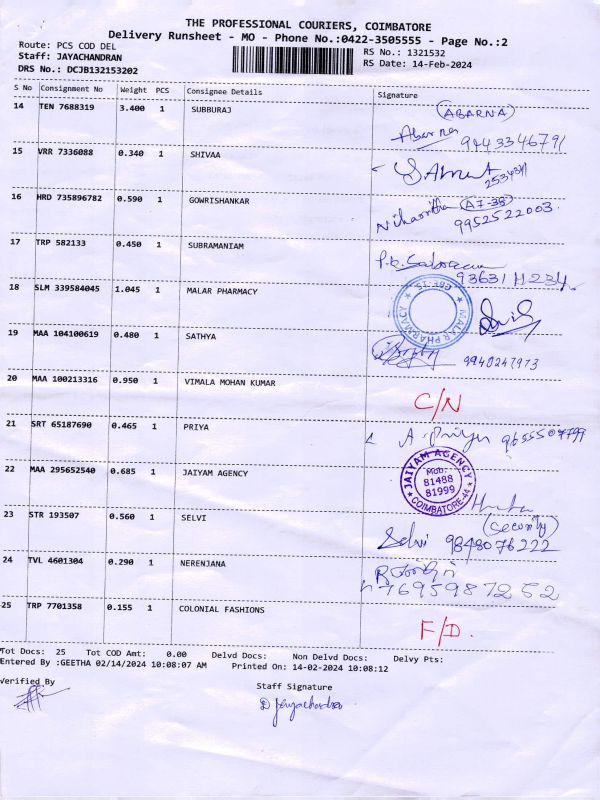 THE PROFESSIONAL COURIERS, COIMBATORE
Delivery Runsheet - MO - Phone No.:0422-3505555 - Page No.:2
Route: PCS COD DEL
RS No.: 1321532
Staff: JAYACHANDRAN
RS Date: 14-Feb-2024
DRS No.: DCJB132153202
S No Consignment No Weight PCS Consignee Details Signature
14 TEN 7688319 3.400 1 SUBBURAJ (ABARNA)
Abarna 9443346791
15 VRR 7336088 0.340 1 SHIVAA
16 HRD 735896782 0.590 1 GOWRISHANKAR A7-3B
9952522003
17 TRP 582133 0.450 1 SUBRAMANIAM
18 SLM 339584045 1.045 1 MALAR PHARMACY MALAR PHARMACY
19 MAA 104100619 0.480 1 SATHYA
9940247973
20 MAA 100213316 0.950 1 VIMALA MOHAN KUMAR C/N
21 SRT 65187690 0.465 1 PRIYA A. Priya
22 MAA 295652540 0.685 1 JAIYAM AGENCY JAIYAM AGENCY
Mob:
81488
81999
COIMBATORE-44
23 STR 193507 0.560 1 SELVI (Security)
Selvi 9848076222
24 TVL 4601304 0.290 1 NERENJANA
25 TRP 7701358 0.155 1 COLONIAL FASHIONS F/D.
Tot Docs: 25 Tot COD Amt: 0.00 Delvd Docs: Non Delvd Docs: Delvy Pts:
Entered By :GEETHA 02/14/2024 10:08:07 AM Printed On: 14-02-2024 10:08:12
Verified By
Staff Signature
D Jeyachandran